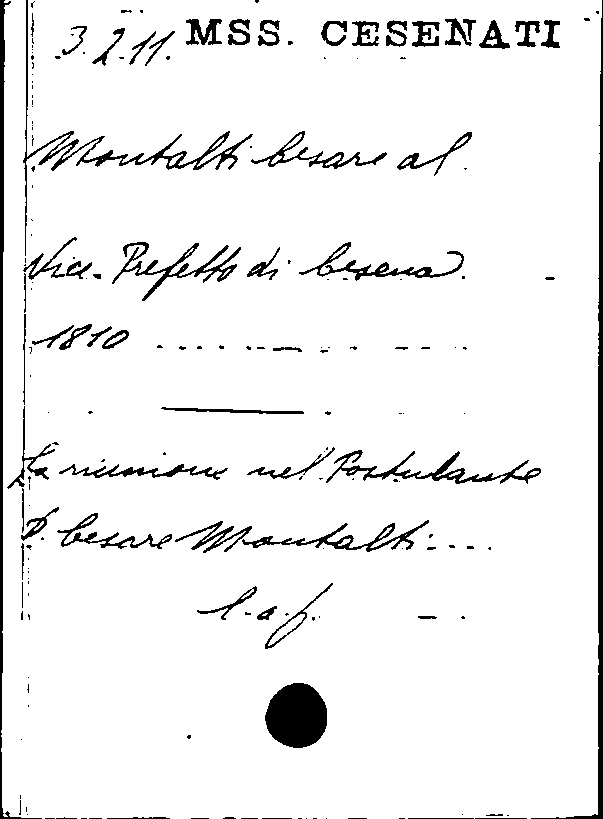 3.2.11. MSS. CESENATI
Montalti Cesare al
Vice-Prefetto di Cesena.
1810 ...........
La riunione nel Postulante
D. Cesare Montalti....
l.a.f.